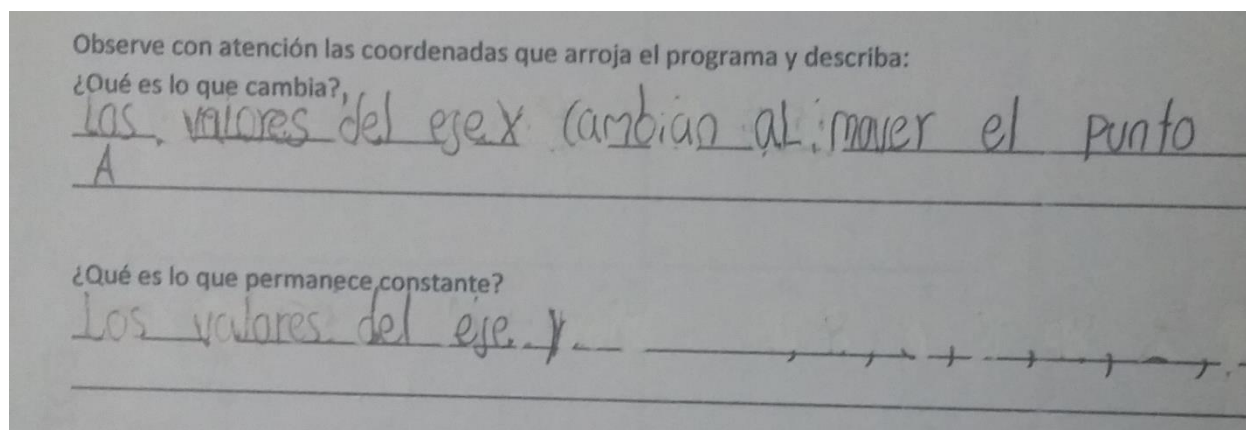 Observe con atención las coordenadas que arroja el programa y describa:
¿Qué es lo que cambia?
Los valores del eje X cambian al mover el punto
A
¿Qué es lo que permanece constante?
Los valores del eje y.